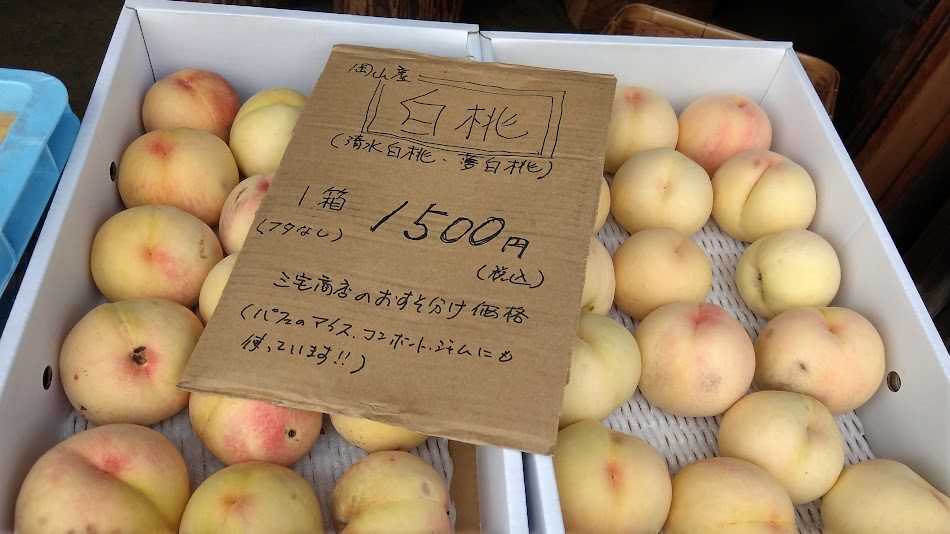 岡山産
白桃
(清水白桃、夢白桃)
1箱
(フタなし)
1500円
(税込)
三宅商店のおすそ分け価格
(パフェのアイス、コンポート、ジャムにも
使っています!!)